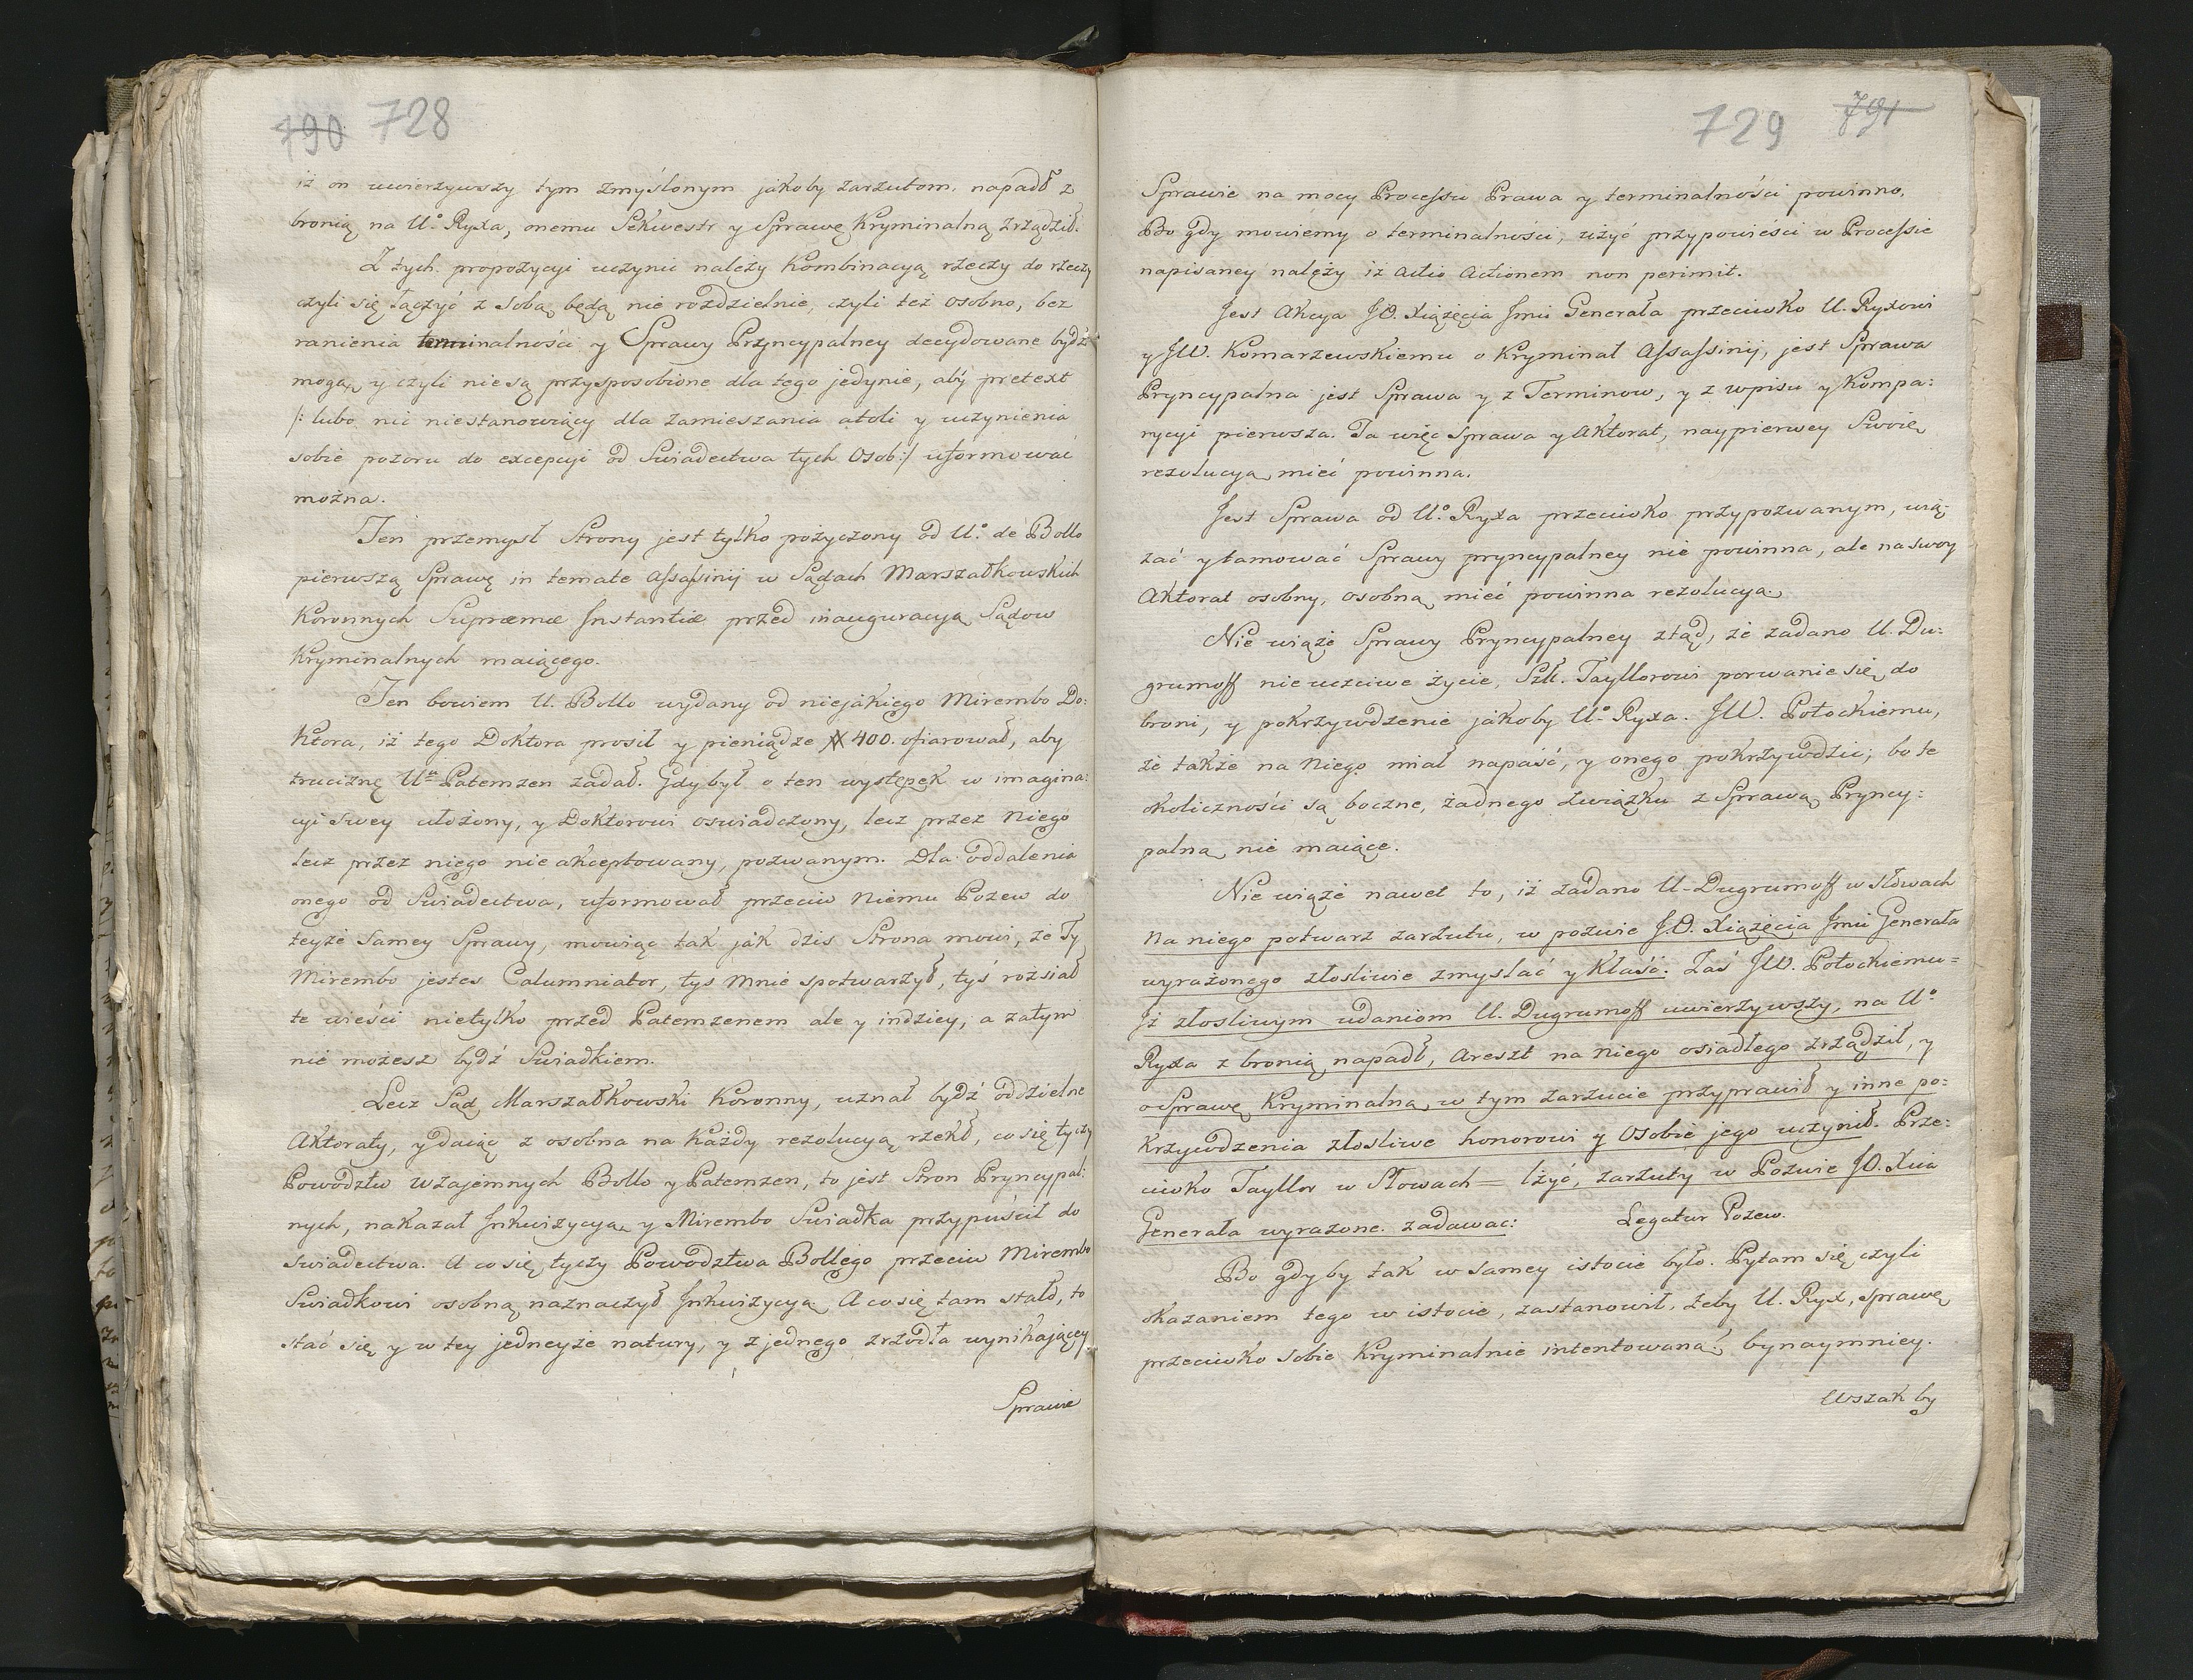 790 728
iż on uwierzywszy tym zmyślonym jakoby zarzutom, napadł z
bronią na U.º Ryxa, onemu Sekwestr y Sprawę Kryminalną zrządził.
Z tych propozycyi uczynić należy Kombinacyą rzeczy do rzeczy
czyli się łączyć z sobą będą nie rozdzielnie, czyli też osobno, bez
ranienia terminalności y Sprawy Pryncypalney decydowane bydź
mogą, y czyli nie są przysposobione dla tego jedynie, aby pretext
/: lubo nic niestanowiący dla zamieszania atoli y uczynienia
sobie pozoru do excepcyi od Swiadectwa tych Osob :/ uformować
można.
Ten przemysł Strony jest tylko pożyczony od U.º de Bollo
pierwszą Sprawę in temate Assassinij w Sądach Marszałkowskich
Koronnych Supremæ Instantiæ przed inauguracyą Sądow
Kryminalnych maiącego.
Ten bowiem U. Bollo wydany od niejakiego Mirembo Do:
ktora, iż tego Doktora prosił y pieniądze # 400. ofiarował, aby
truciznę U.ᵉ Patemzen zadał. Gdy był o ten występek w imagina:
cyi swey ułożony, y Doktorowi oswiadczony, lecz przez Niego
lecz przez niego nie akceptowany, pozwanym. Dla oddalenia
onego od Swiadectwa, uformował przeciw Niemu Pozew do
teyże Samey Sprawy, mowiąc tak jak dzis Strona mowi, że Ty
Mirembo jestes Calumniator, tys mnie spotwarzył, tyś rozsiał
te wieści nietylko przed Patemzenem ale y indziey, a zatym
nie możesz bydź Swiadkiem.
Lecz Sąd Marszałkowski Koronny, uznał bydź oddzielne
Aktoraty, y daiąc z osobna na Każdy rezolucyą rzekł, co się tyczy
Powodztw wzajemnych Bollo y Patemzen, to jest Stron Pryncypal:
nych, nakazał Inkwizycyą y Mirembo Swiadka przypuścił do
swiadectwa. A co się tyczy Powodztwa Bollego przeciw Mirembo
Swiadkowi osobną naznaczył Inkwizycyą. A co się tam stało, to
stać się y w tey jedneyże natury, y z jednego zrzodła wynikającey
Sprawie
729 791
Sprawie na mocy Processu Prawa y terminalności powinno.
Bo gdy mowiemy o terminalności, użyć przypowieści w Processie
napisaney należy iż Actio Actionem non perimit.
Jest Akcya J.O. Xiążęcia Jmci Generała przeciwko U. Ryxowi
y JW. Komarzewskiemu o Kryminał Assassinij, jest Sprawa
Pryncypalna jest Sprawa y z Terminow, y z wpisu y Kompa:
rycyi pierwsza. Ta więc Sprawa y Aktorat, naypierwey Swoię
rezolucyą mieć powinna.
Jest Sprawa od U.º Ryxa przeciwko przypozwanym, wią:
zać y tamować Sprawy pryncypalney nie powinna, ale na swoy
Aktorat osobny, osobną mieć powinna rezolucyą.
Nie wiąże Sprawy Pryncypalney ztąd, że zadano U. Du:
grumoff nieuczciwe życie, Szł. Tayllorowi porwanie się do
broni, y pokrzywdzenie jakoby U.º Ryxa. JW. Potockiemu,
że także na Niego miał napaść, y onego pokrzywdzic; bo te
okoliczności są boczne, żadnego związku z Sprawą Pryncy:
palną nie maiące.
Nie wiąże nawet to, iż zadano U. Dugrumoff w słowach
na niego potwarz zarzutu, w pozwie J.O. Xiążęcia Jmci Generała
wyrażonego złosliwie zmyslać y kłaść. Zaś JW. Potockiemu =
Iż złosliwym udaniom U. Dugrumoff uwierzywszy, na U.º
Ryxa z bronią napadł, Areszt na Niego osiadłego zrządził, y
o Sprawę Kryminalną w tym zarzucie przyprawił y inne po:
krzywdzenia złosliwe honorowi y Osobie jego uczynił. Prze:
ciwko Tayllor w Słowach = lżyć, zarzuty w Pozwie J.O. Xcia
Generała wyrazone. zadawac: Legatur Pozew.
Bo gdyby tak w samey istocie było. Pytam się czyli
okazaniem tego w istocie, zastanowił, żeby U. Ryx, Sprawę
przeciwko sobie Kryminalnie intentowaną? bynaymniey.
Wszak by